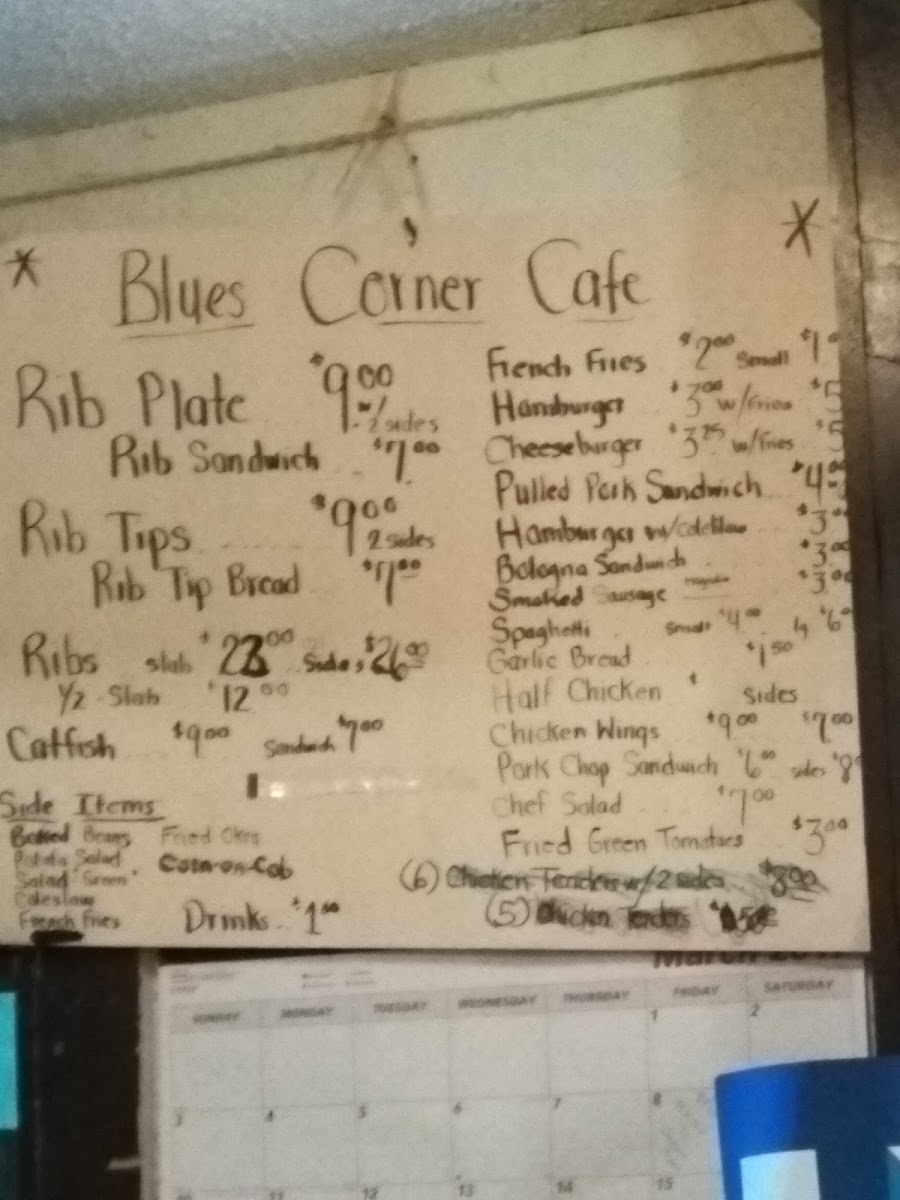 * Blues Corner Cafe *
Rib Plate $9.00 w/ 2 sides
Rib Sandwich $7.00
Rib Tips $9.00 2 sides
Rib Tip Bread $7.00
Ribs slab $23.00 Sides $26.00
1/2 Slab $12.00
Catfish $9.00 Sandwich $7.00
Side Items
Baked Beans Fried Okra
Potato Salad Corn-on-Cob
Salad "Green"
Coleslaw
French Fries
Drinks $1.00
French Fries $2.00 Small $1.0
Hamburger $3.00 w/Fries $5
Cheeseburger $3.75 w/Fries $5
Pulled Pork Sandwich $4.00
Hamburger w/Coleslaw $3.00
Bologna Sandwich $3.00
Smoked Sausage $3.00
Spaghetti Small $4.00 lg $6.0
Garlic Bread $1.50
Half Chicken $ Sides
Chicken Wings $9.00 $7.00
Pork Chop Sandwich $6.00 sides $8
Chef Salad $7.00
Fried Green Tomatoes $3.00
(6) Chicken Tenders w/2 sides $8.00
(5) Chicken Tenders
March
SUNDAY MONDAY TUESDAY WEDNESDAY THURSDAY FRIDAY SATURDAY
1 2
3 4 5 6 7 8
10 11 12 13 14 15